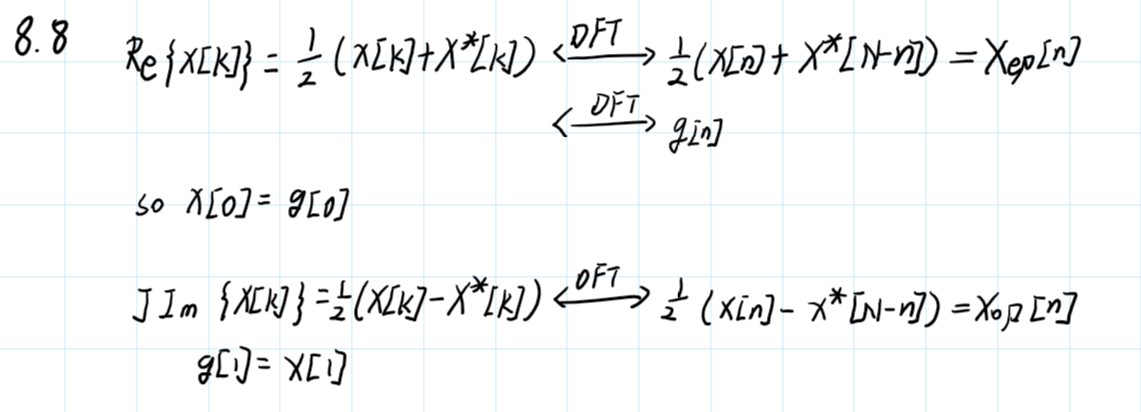 8.8 Re{X[k]} = 1/2 (X[k]+X*[k]) <—DFT—> 1/2(X[n]+X*[N-n]) = Xep[n]
<—DFT—> g[n]
so X[0] = g[0]
JIm {X[k]} = 1/2(X[k]-X*[k]) <—DFT—> 1/2 (x[n]-x*[N-n]) = Xop[n]
g[1] = X[1]